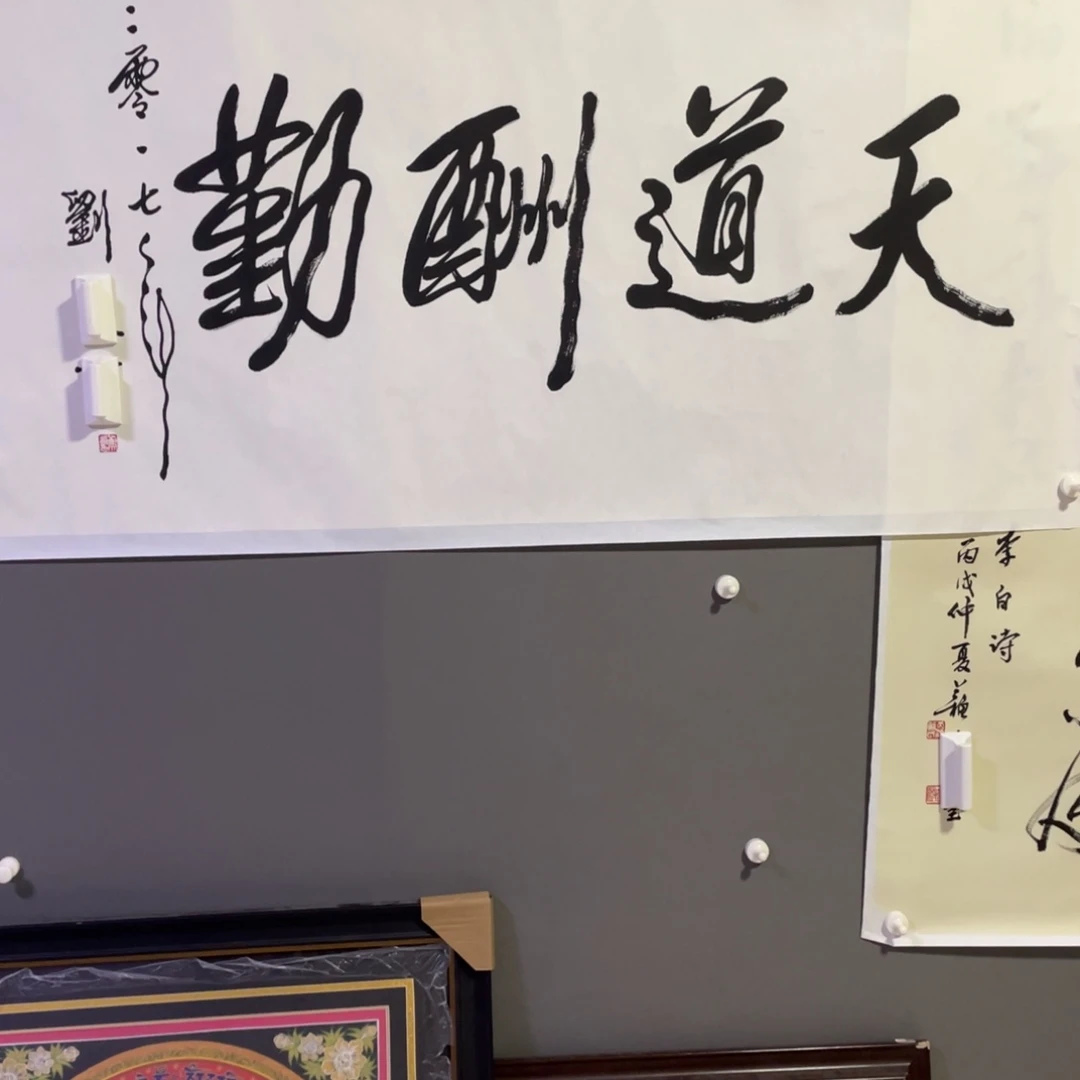 天道酬勤
二零一七年
劉
李白诗
丙戌仲夏